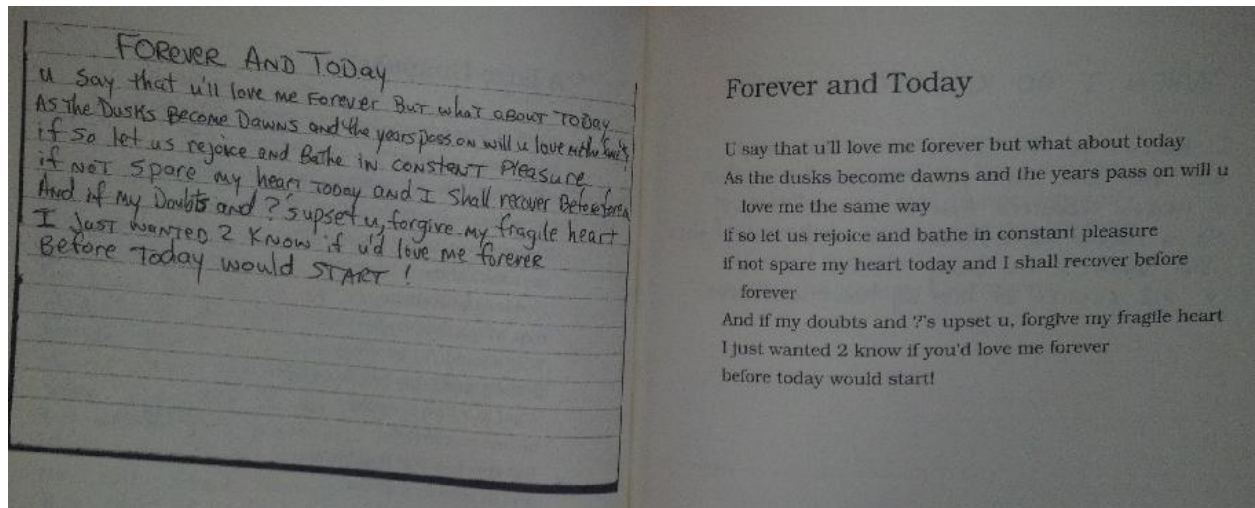 FOREVER AND TODAY
u say that u'll love me Forever But what about Today
As The Dusks Become Dawns and the years pass on will u love me the
if so let us rejoice and Bathe in constent Pleasure
if NOT Spare my heart Today and I Shall recover Before forever
And if my Doubts and ?'s upset u, forgive my fragile heart
I Just wanted 2 Know if u'd love me forever
Before Today would START!
Forever and Today
U say that u'll love me forever but what about today
As the dusks become dawns and the years pass on will u
love me the same way
if so let us rejoice and bathe in constant pleasure
if not spare my heart today and I shall recover before
forever
And if my doubts and ?'s upset u, forgive my fragile heart
I just wanted 2 know if you'd love me forever
before today would start!